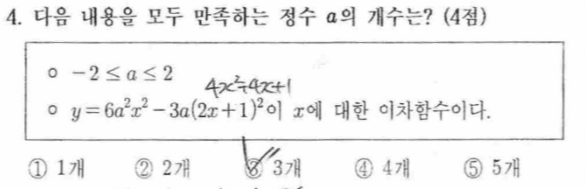 4. 다음 내용을 모두 만족하는 정수 a의 개수는? (4점)
○ -2≤a≤2
4x²+4x+1
○ y=6a²x²-3a(2x+1)²이 x에 대한 이차함수이다.
① 1개 ② 2개 ③ 3개 ④ 4개 ⑤ 5개